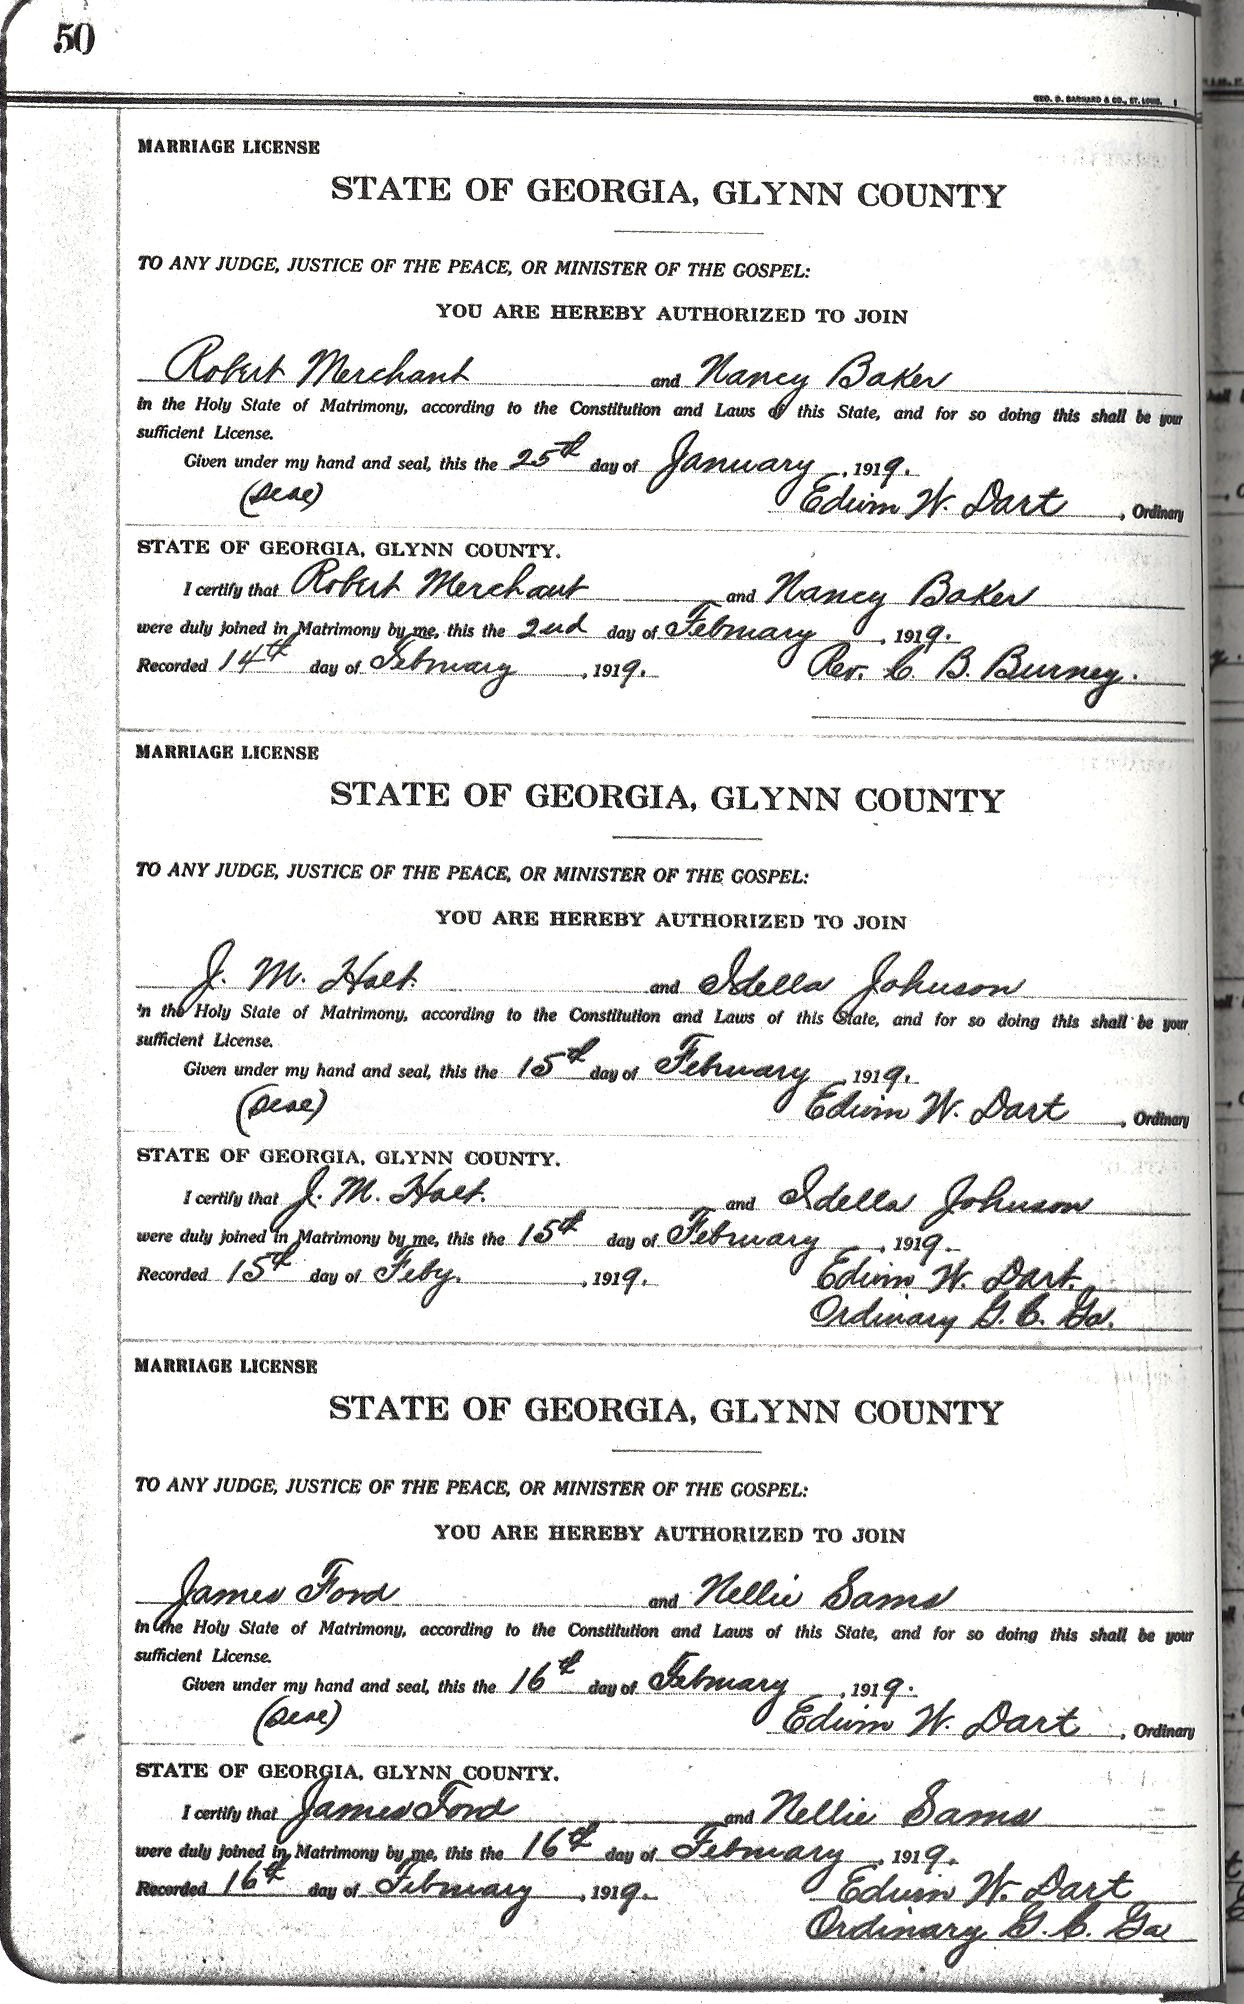 50
GEO. D. BARNARD & CO., ST. LOUIS.
MARRIAGE LICENSE
STATE OF GEORGIA, GLYNN COUNTY
TO ANY JUDGE, JUSTICE OF THE PEACE, OR MINISTER OF THE GOSPEL:
YOU ARE HEREBY AUTHORIZED TO JOIN
Robert Merchant and Nancy Baker
in the Holy State of Matrimony, according to the Constitution and Laws of this State, and for so doing this shall be your
sufficient License.
Given under my hand and seal, this the 25th day of January, 1919.
(Seal) Edwin W. Dart, Ordinary
STATE OF GEORGIA, GLYNN COUNTY.
I certify that Robert Merchant and Nancy Baker
were duly joined in Matrimony by me, this the 2nd day of February, 1919.
Recorded 14th day of February, 1919. Rev. C. B. Burney.
MARRIAGE LICENSE
STATE OF GEORGIA, GLYNN COUNTY
TO ANY JUDGE, JUSTICE OF THE PEACE, OR MINISTER OF THE GOSPEL:
YOU ARE HEREBY AUTHORIZED TO JOIN
J. M. Holt. and Idella Johnson
in the Holy State of Matrimony, according to the Constitution and Laws of this State, and for so doing this shall be your
sufficient License.
Given under my hand and seal, this the 15th day of February, 1919.
(Seal) Edwin W. Dart, Ordinary
STATE OF GEORGIA, GLYNN COUNTY.
I certify that J. M. Holt. and Idella Johnson
were duly joined in Matrimony by me, this the 15th day of February, 1919.
Recorded 15th day of Feby., 1919. Edwin W. Dart.
Ordinary G. C. Ga.
MARRIAGE LICENSE
STATE OF GEORGIA, GLYNN COUNTY
TO ANY JUDGE, JUSTICE OF THE PEACE, OR MINISTER OF THE GOSPEL:
YOU ARE HEREBY AUTHORIZED TO JOIN
James Ford and Nellie Sams
in the Holy State of Matrimony, according to the Constitution and Laws of this State, and for so doing this shall be your
sufficient License.
Given under my hand and seal, this the 16th day of February, 1919.
(Seal) Edwin W. Dart, Ordinary
STATE OF GEORGIA, GLYNN COUNTY.
I certify that James Ford and Nellie Sams
were duly joined in Matrimony by me, this the 16th day of February, 1919.
Recorded 16th day of February, 1919. Edwin W. Dart
Ordinary G. C. Ga